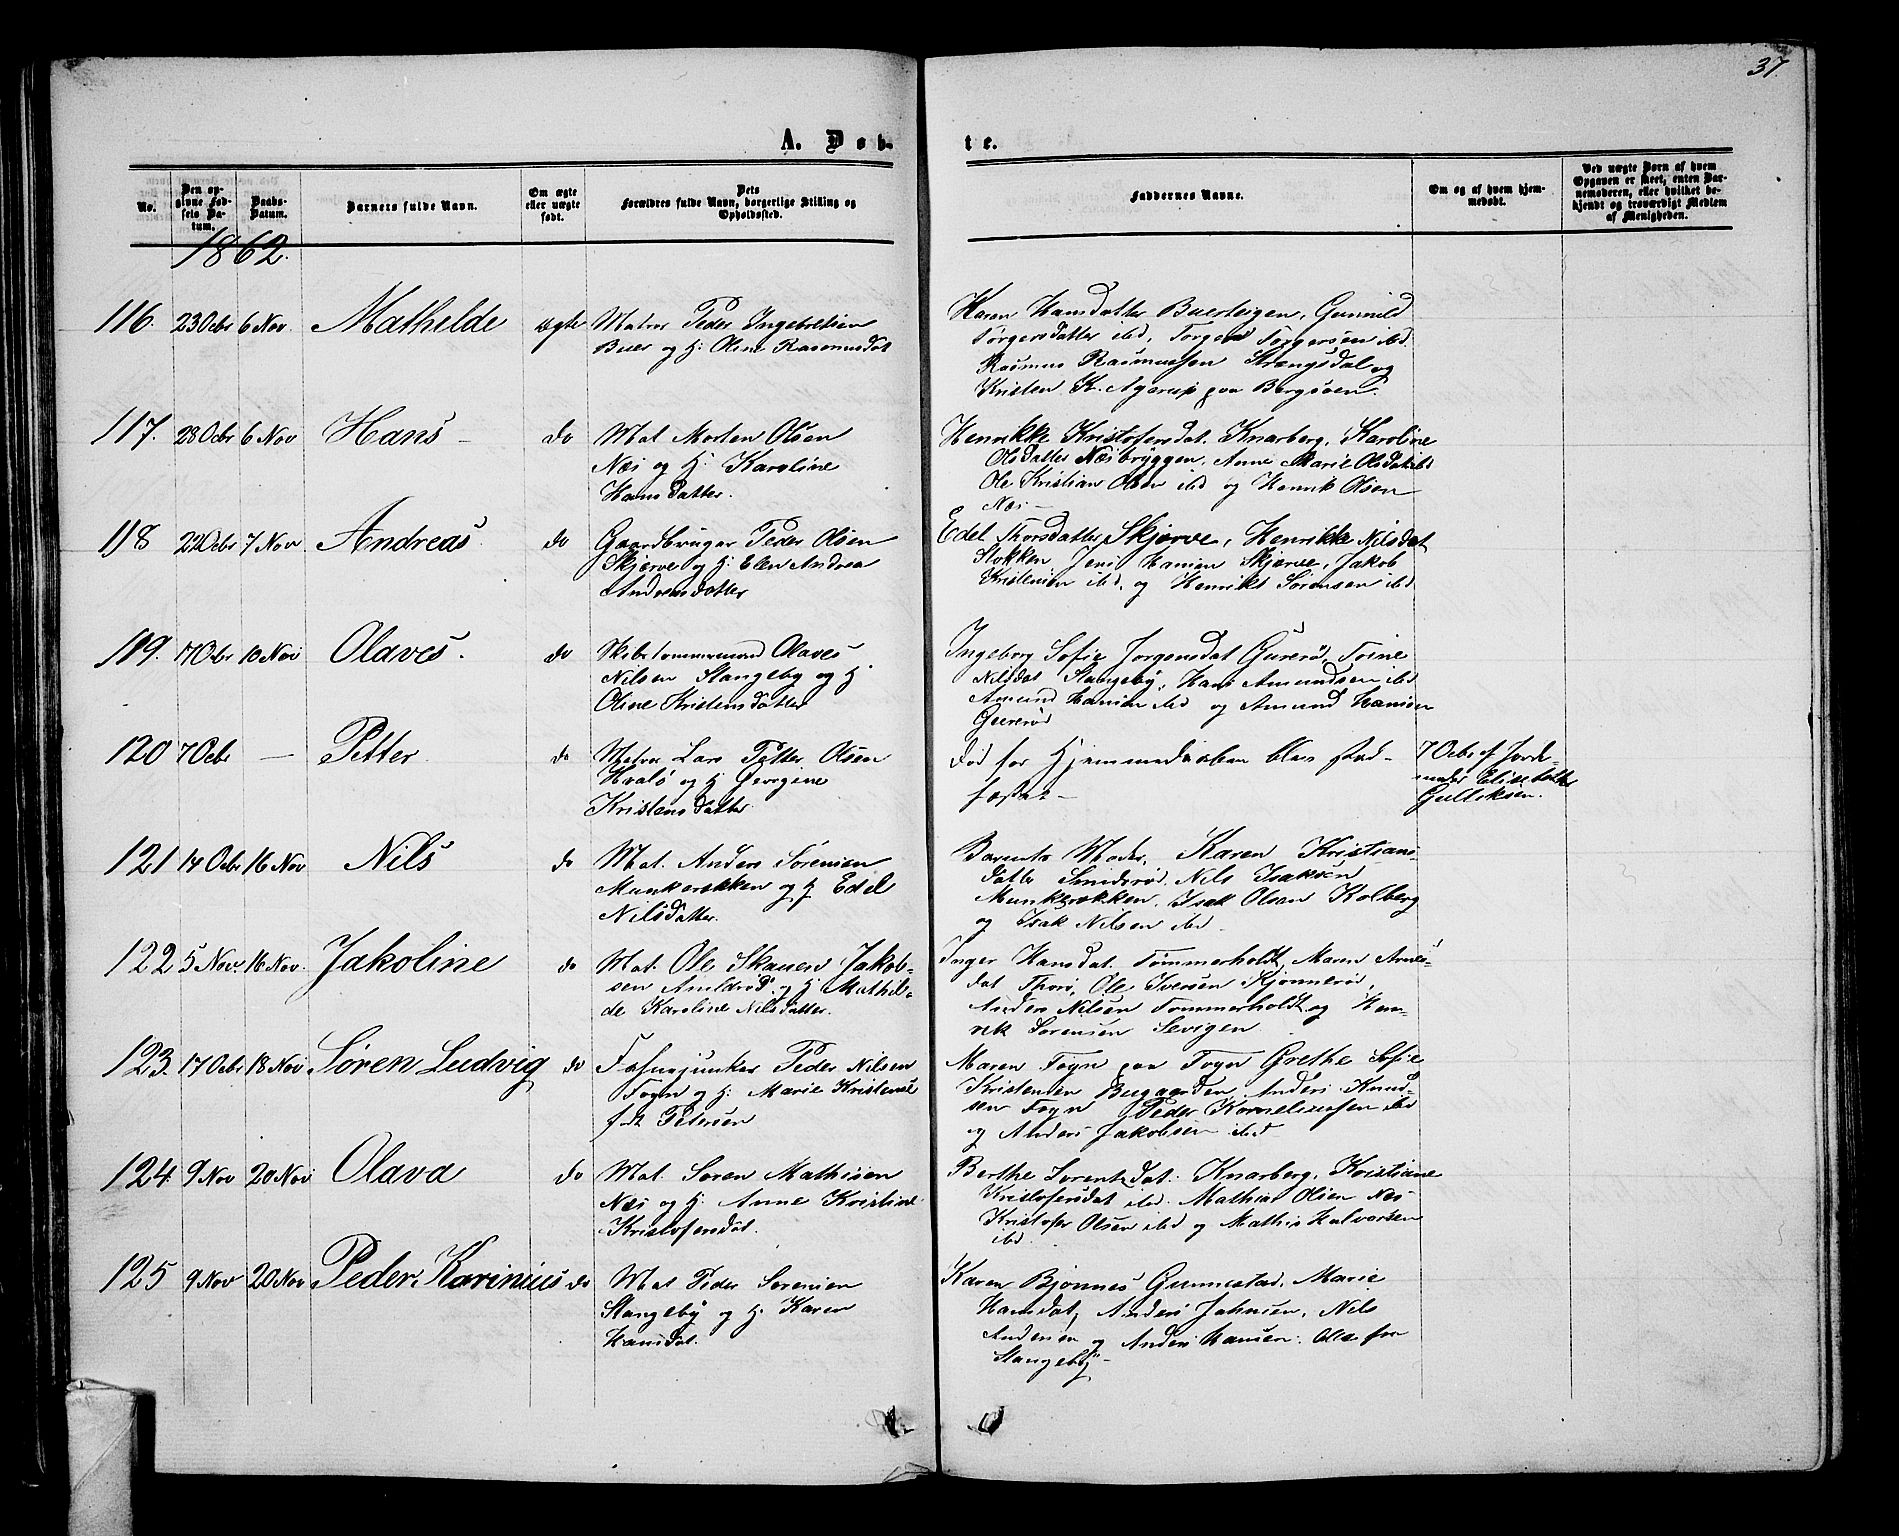 37
A. Døb-
te.
No.
Den op-
givne Fød-
sels Da-
tum.
Daabs-
Datum.
Barnets fulde Navn.
Om ægte
eller uægte
født.
Dets
Forældres fulde Navn, borgerlige Stilling og
Opholdssted.
Faddernes Navne.
Om og af hvem hjem-
medøbt.
Ved uægte Børn af hvem
Opgaven er skeet, enten Bar-
nemoderen, eller hvilket be-
kjendt og troværdigt Medlem
af Menigheden.
1862.
116. 23 Octr 6 Nov. Mathilde ægte Matros Peder Ingebretsen
Buer og H. Oline Rasmusdat
Karen Hansdatter Buersteigen, Gunnild
Torgersdatter ibd, Torger Torgersen ibd.
Rasmus Rasmussen Strengsdal og
Kristen K. Agerup paa Bergsøen.
117. 28 Octr 6 Nov Hans - do Mat Morten Olsen
Næs og H. Karoline
Hansdatter.
Henrikke Kristofersdat. Knarberg, Karoline
Olsdatter Næsbryggen, Anne Marie Olsdat ibd
Ole Kristian Olsen ibd og Henrik Olsen
Næs -
118 22 Octr 7 Nov Andreas do Gaardbruger Peder Olsen
Skjerve og H. Elen Andrea
Andreasdatter
Edel Thorsdatter Skjerve, Henrikke Nilsdat
Stokken, Jens Hansen Skjerve, Jakob
Kristensen ibd, og Henrikt Sørensen ibd
119. 17 Octr 10 Nov Olaves. do Skibstømmermand Olaves
Nilsen Stangeby og H
Oline Kristensdatter
Ingeborg Sofie Jørgensdat Gurerød, Trine
Nilsdat Stangeby, Hans Amundsen ibd
Amund Hansen ibd og Amund Hansen
Gurerød
120 7 Octr - Petter do Matros Lars Petter Olsen
Hvalø og H Georgine
Kristensdatter
død før Hjemmedaaben blev stad-
fæstet -
7 Octr af Jorde-
moder Elisebeth
Gulliksen.
121 14 Octr 16 Nov Nils do Mat. Anders Sørensen
Munkerekken og H Edel
Nilsdatter.
Barnets Moder, Karen Kristians-
datter Smidsrød, Nils Isaksen
Munkerekken, Isak Olsen Kolberg
og Isak Nilsen ibd -
122 5 Nov. 16 Nov. Jakoline do Mat. Ole Skauen Jakob-
sen Amldrød og H Mathil-
de Karoline Nilsdatter.
Inger Hansdat. Tømmerholdt, Maren Arnes-
dat Thorø, Ole Iversen Kjønnerø,
Anders Nilsen Tømmerholdt og Hen-
rik Sørensen Sevigen
123. 17 Octr 18 Nov Søren Ludvig do Peder Nilsen
Fogn og H. Marie Kristense
født Petersen
Maren Fogn paa Fogn Grethe Sofie
Kristensen Bugaarden, Anders Knud-
sen Fogn Peder Korneliussen ibd
og Anders Jakobsen ibd
124. 9 Nov 20 Nov Olava do Mat. Søren Mathisen
Næs og H. Anne Kristine
Kristofersdat.
Berthe Sørentzdat. Knarberg, Kristiane
Kristofersdat ibd. Mathias Olsen Næs -
Kristofer Olsen ibd og Mathis Halvorsen
ibd.
125 9 Nov 20 Nov Peder Karinius do Mat Peder Sørensen
Stangeby og H. Karen
Hansdat.
Karen Bjønnes Gunnestad, Marie
Hansdat, Anders Jahnsen, Nils
Andersen og Anders Hansen. Alle fra
Stangeby -